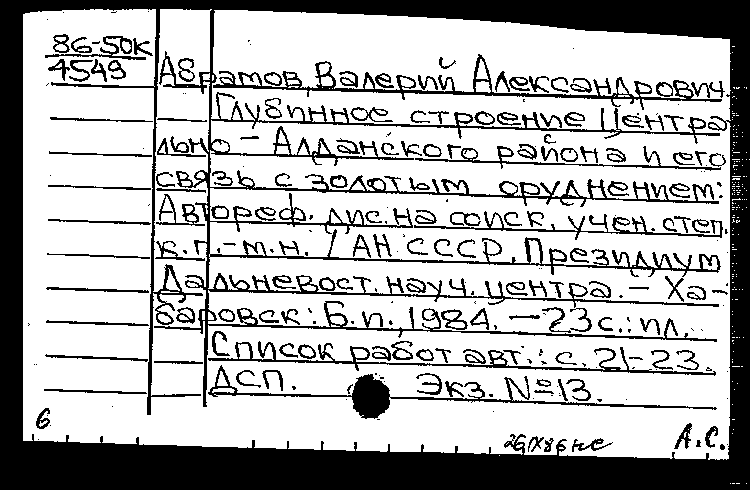 86-50к
4549
Абрамов, Валерий Александрович.
Глубинное строение Центра
льно - Алданского района и его
связь с золотым оруднением:
Автореф. дис. на соиск. учен. степ.
к.г.-м.н. / АН СССР, Президиум
Дальневост. науч. центра. - Ха-
баровск: Б.и., 1984. - 23 с.: ил.
Список работ авт.: с. 21-23.
ДСП. Экз. №13.
6
26.IX86 нс
А.С.